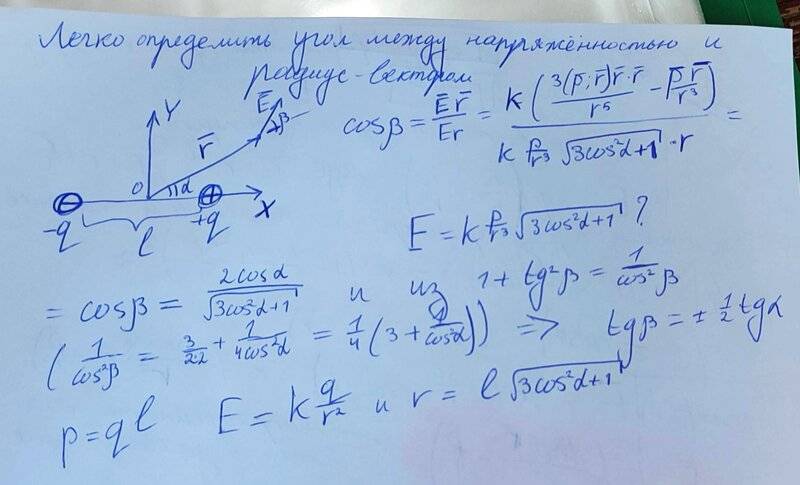 Легко определить угол между напряжённостью и
радиус-вектором
cosβ = E̅r̅/Er = k(3(p̅,r̅)r̅·r̅/r⁵ - p̅r̅/r³)/(k p/r³ √(3cos²α+1) · r) =
Y
E̅
β
r̅
O
α
X
-q
+q
l
E = k p/r³ √(3cos²α+1) ?
= cosβ = 2cosα/√(3cos²α+1) и из 1 + tg²β = 1/cos²β
(1/cos²β = 3/22 + 1/4cos²α = 1/4 (3 + 1/cos²α)) => tgβ = ± 1/2 tgα
p = ql E = k q/r² и r = l √(3cos²α+1)